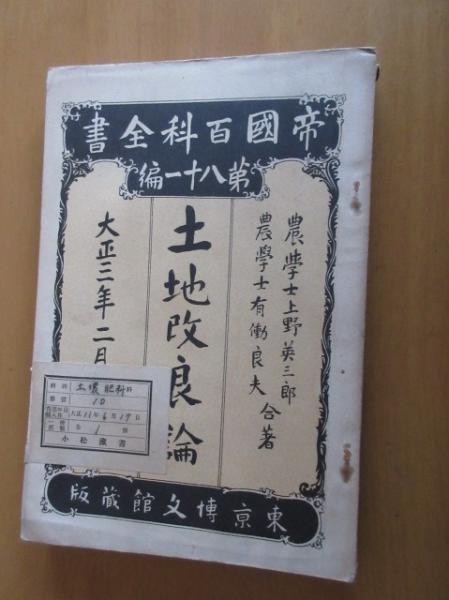 書全科百國帝
編一十八第
農學士上野英三郎
農學士有働良夫 合著
土地改良論
大正三年二月
科料 土壤肥料科
番號 10
大正11年6月19日
全 1 冊
小松藏書
版藏館文博京東